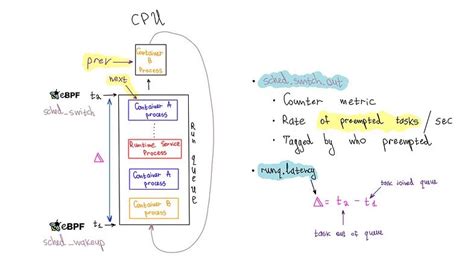 CPU
prev
Container
B
Process
next
eBPF
t2
sched_switch
Container A
process
Runtime Service
Process
Container A
process
Container B
process
Run queue
Δ
eBPF
t1
sched_wakeup
• sched_switch_out
• Counter metric
• Rate of preempted tasks / sec
• Tagged by who preempted
• runq.latency
task joined queue
Δ = t2 - t1
task out of queue